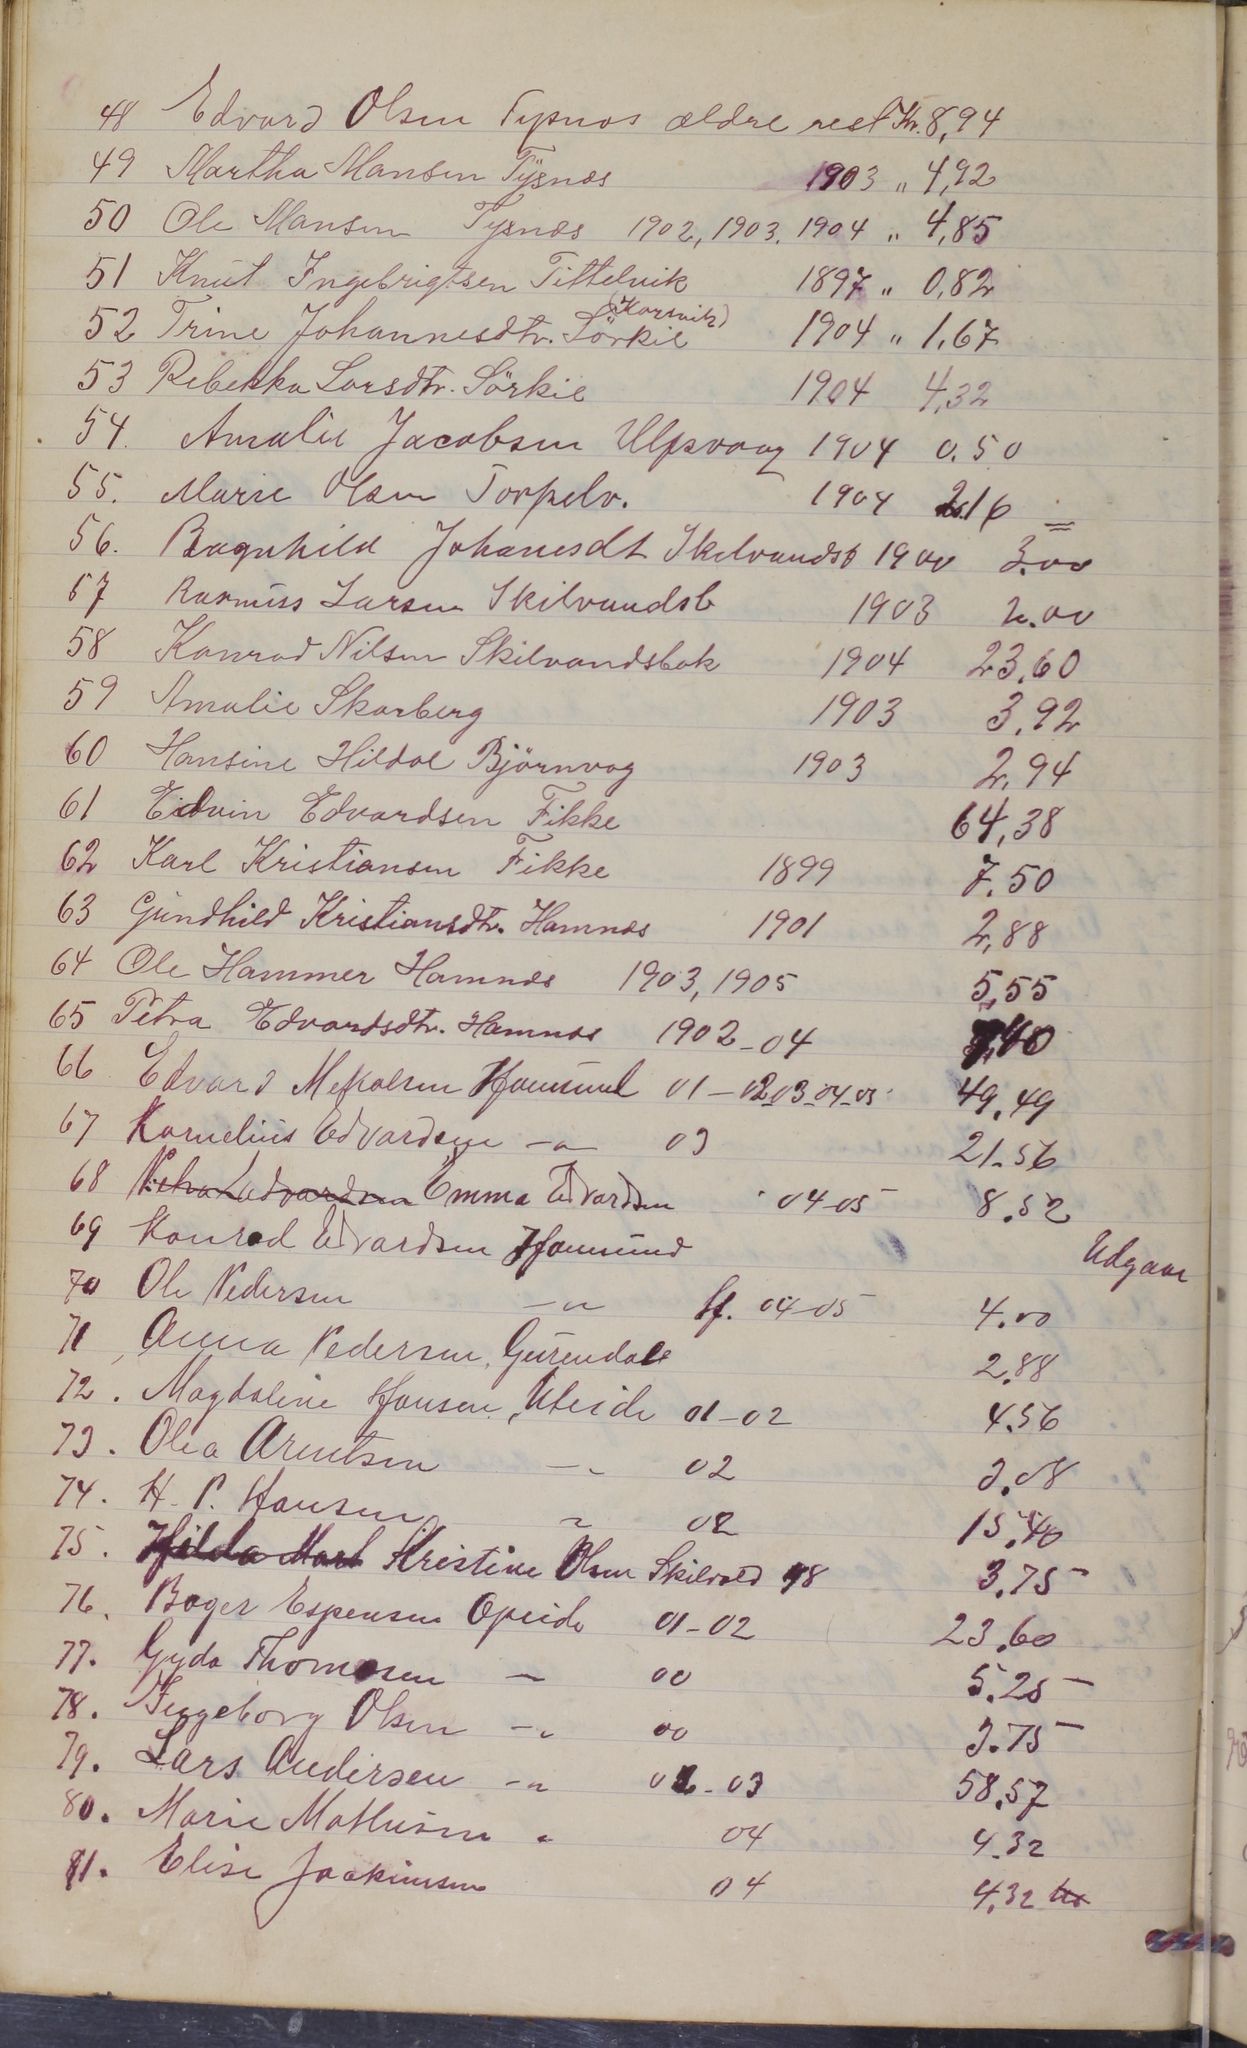 48 Edvard Olsen Tysnæs ældre rest Kr. 8,94
49 Martha Mansen Tysnæs 1903 " 4,92
50 Ole Mansen Tysnæs 1902, 1903, 1904 " 4,85
51 Knut Ingebrigtsen Tittelvik 1897 " 0,82
(Korsvik)
52 Trine Johannesdtr. Sörkil 1904 " 1,67
53 Rebekka Larsdtr. Sörkil 1904 4,32
54. Amalie Jacobsen Ulpsvaag 1904 0.50
55. Marie Olsen Torpelv. 1904 2.16 =
56. Ragnhild Johanesdt Skilvandsb 1900 3.00
57 Rasmus Larsen Skilvandsb 1903 2.00
58 Konrad Nilsen Skilvandsbak 1904 23,60
59 Amalie Skarberg 1903 3,92
60 Hansine Hildal Björnvag 1903 2,94
61 Edvin Edvardsen Fikke 64,38
62 Karl Kristiansen Fikke 1899 7.50
63 Gundhild Kristiansdtr. Hamnæs 1901 2,88
64 Ole Hammer Hamnæs 1903, 1905 5,55
65 Petra Edvardsdtr. Hamnæs 1902-04
66 Edvard Mikalsen Hamsund 01-02-03-04-05 49,49
67 Kornelius Edvardsen -"- 03 21.56
68 Petra Edvardsen Emma Edvardsen 04-05 8.52
69 Konrad Edvardsen Hamsund Udgaar
70 Ole Pedersen -"- 04-05 4.00
71 Anna Pedersen, Geirendal 2.88
72. Magdaline Hansen, Uteide 01-02 4.56
73. Olea Arentsen -"- 02 3.08
74. H. P. Hansen " 02 15.40
75. Hilda Kristine Olsen Skilvad 98 3.75-
76. Boger Espensen Opeide 01-02 23.60
77. Gyda Thomasen - 00 5.25-
78. Ingeborg Olsen -"- 00 3.75-
79. Lars Andersen -"- 02-03 58.57
80. Marie Mathisen " 04 4.32
81. Elise Joakimsen 04 4.32